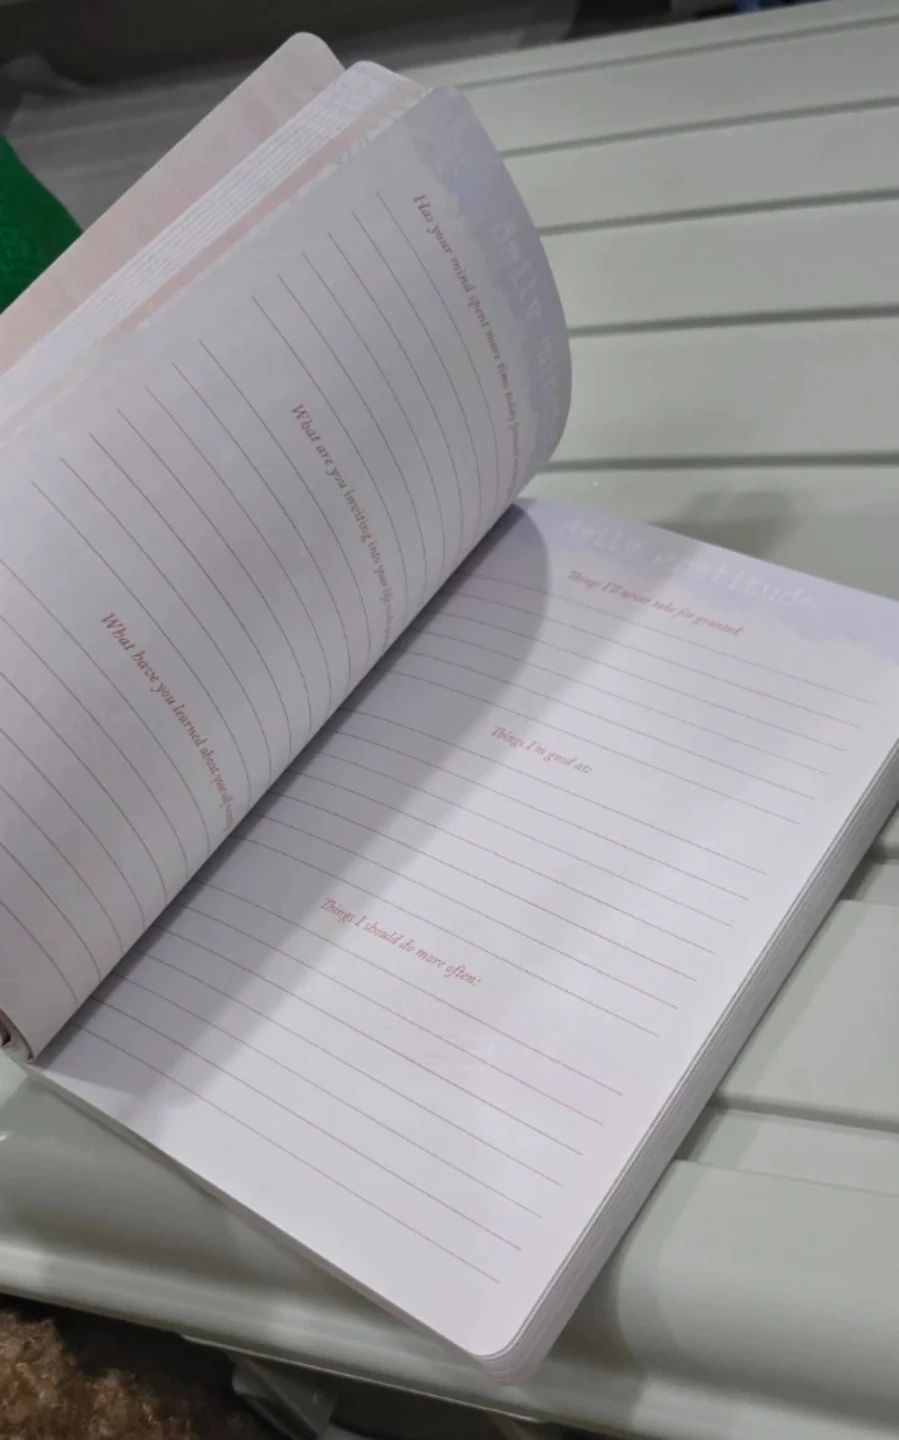 daily
Has your mind spent more time today focused
What are you inviting into your life with your
What have you learned about yourself
daily gratitude
Things I'll never take for granted:
Things I'm good at:
Things I should do more often: